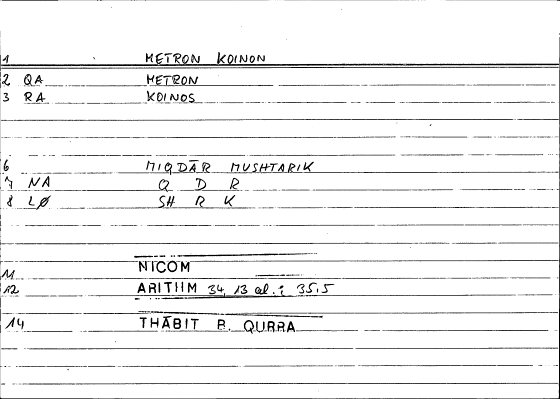 1 METRON KOINON
2 QA METRON
3 RA KOINOS
6 MIQDĀR MUSHTARIK
7 NA Q D R
8 LØ SH R K
11 NICOM
12 ARITHM 34, 13 al.; 35,5
14 THĀBIT B. QURRA